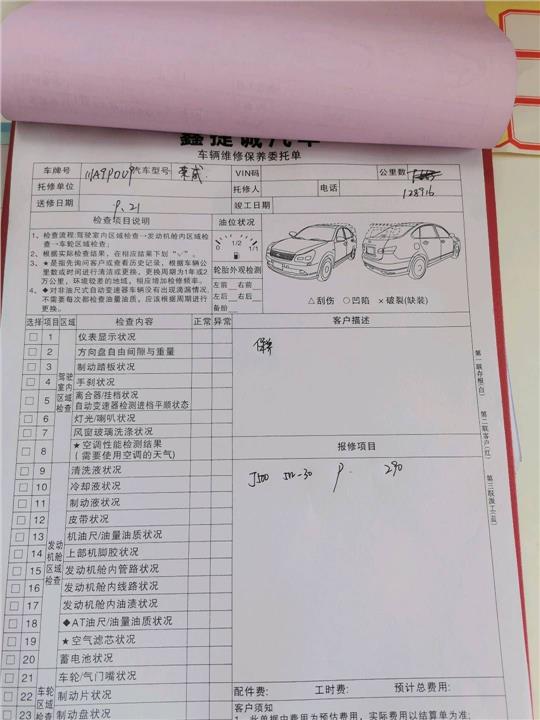 鑫捷诚汽车
车辆维修保养委托单
车牌号 汽车型号 荣威 VIN码 公里数
128916
托修单位 托修人 电话
送修日期 9.21 竣工日期
检查项目说明 油位状况
1、检查流程:驾驶室内区域检查→发动机舱内区域检查→车轮区域检查;
2、根据实际检查结果,在相应结果下划“√”。
3、★是指先询问客户或查看历史记录,根据车辆公里数或时间进行清洁或更换,更换周期为1年或2万公里,环境较差的地域,相应增加检修频率。
4、◆对非油尺式自动变速器车辆没有出现滴漏情况,不需要每次都检查油量油质,应该根据周期进行更换。
0 1/2 1/1
轮胎外观检测
左前 右前
左后 右后
备胎
△刮伤 ○凹陷 ×破裂(缺装)
选择 项目 区域 检查内容 正常 异常
驾驶室内区域检查
1 仪表显示状况
2 方向盘自由间隙与重量
3 制动踏板状况
4 手刹状况
5 离合器/挂档状况
自动变速器检测进档平顺状态
6 灯光/喇叭状况
7 风窗玻璃洗涤状况
8 ★空调性能检测结果
(需要使用空调的天气)
发动机舱区域检查
9 清洗液状况
10 冷却液状况
11 制动液状况
12 皮带状况
13 机油尺/油量油质状况
14 上部机脚胶状况
15 发动机舱内管路状况
16 发动机舱内线路状况
17 发动机舱内油渍状况
18 ◆AT油尺/油量油质状况
19 ★空气滤芯状况
20 蓄电池状况
车轮区域检查
21 车轮/气门嘴状况
22 制动片状况
23 制动盘状况
客户描述
保养
报修项目
J500 5W-30 P 290
第一联存根(白)
第二联客户(红)
第三联派工(蓝)
配件费: 工时费: 预计总费用:
客户须知
1、此单据中费用为预估费用,实际费用以结算单为准;